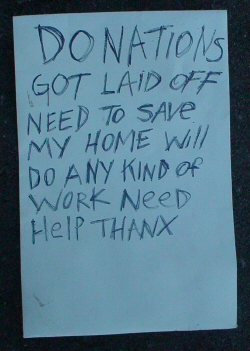 DONATIONS
GOT LAID OFF
NEED TO SAVE
MY HOME Will
DO ANY KIND OF
WORK NEED
HelP THANX